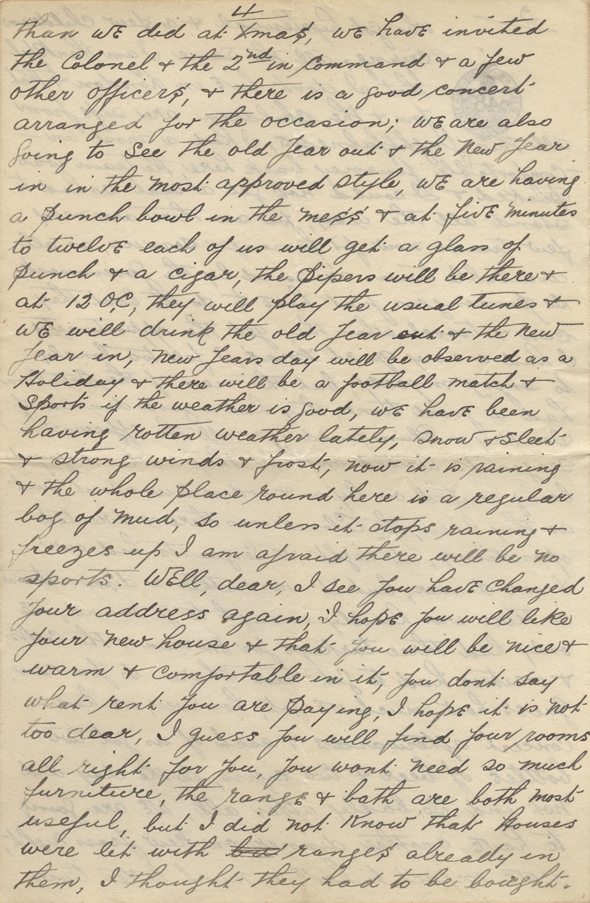 4
than we did at Xmas, we have invited
the Colonel & the 2nd in Command & a few
other officers, & there is a good concert
arranged for the occasion; we are also
going to see the old Year out & the New Year
in in the most approved style, we are having
a punch bowl in the mess & at five minutes
to twelve each of us will get a glass of
punch & a cigar, the pipers will be there &
at 12 OC, they will play the usual tunes &
we will drink the old Year out & the New
Year in, New Years day will be observed as a
Holiday & there will be a football match &
Sports if the weather is good, we have been
having rotten weather lately, snow & sleet
& strong winds & frost, now it is raining
& the whole place round here is a regular
bog of mud, so unless it stops raining &
freezes up I am afraid there will be no
sports. Well, dear, I see you have changed
your address again, I hope you will like
your new house & that you will be nice &
warm & comfortable in it, you dont say
what rent you are paying, I hope it is not
too dear, I guess you will find four rooms
all right for you, you wont need so much
furniture, the range & bath are both most
useful, but I did not know that houses
were let with ranges already in
them, I thought they had to be bought.